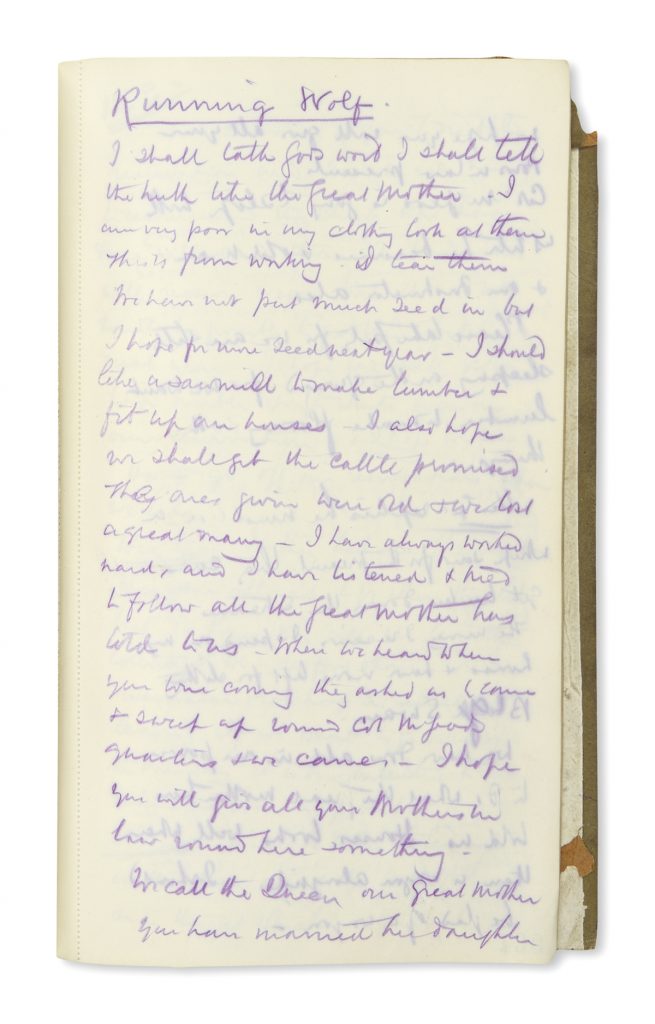 Running Wolf.
I shall talk Gods word I shall tell
the truth like the Great Mother I
am very poor in my clothing look at them
this is from working I tear them
We have not put much seed in but
I hope for more seed next year – I should
like a sawmill to make lumber +
fit up our houses – I also hope
we shall get the cattle promised
The ones given were old + we lost
a great many – I have always worked
hard, and I have listened + tried
to follow all the Great Mother has
told to us – we heard when
you were coming they asked us to come
+ sweep up round Col McLeods
quarters + we came – I hope
you will give all your Brothers in
law round here something –
We call the Queen our Great Mother
You have married her daughter